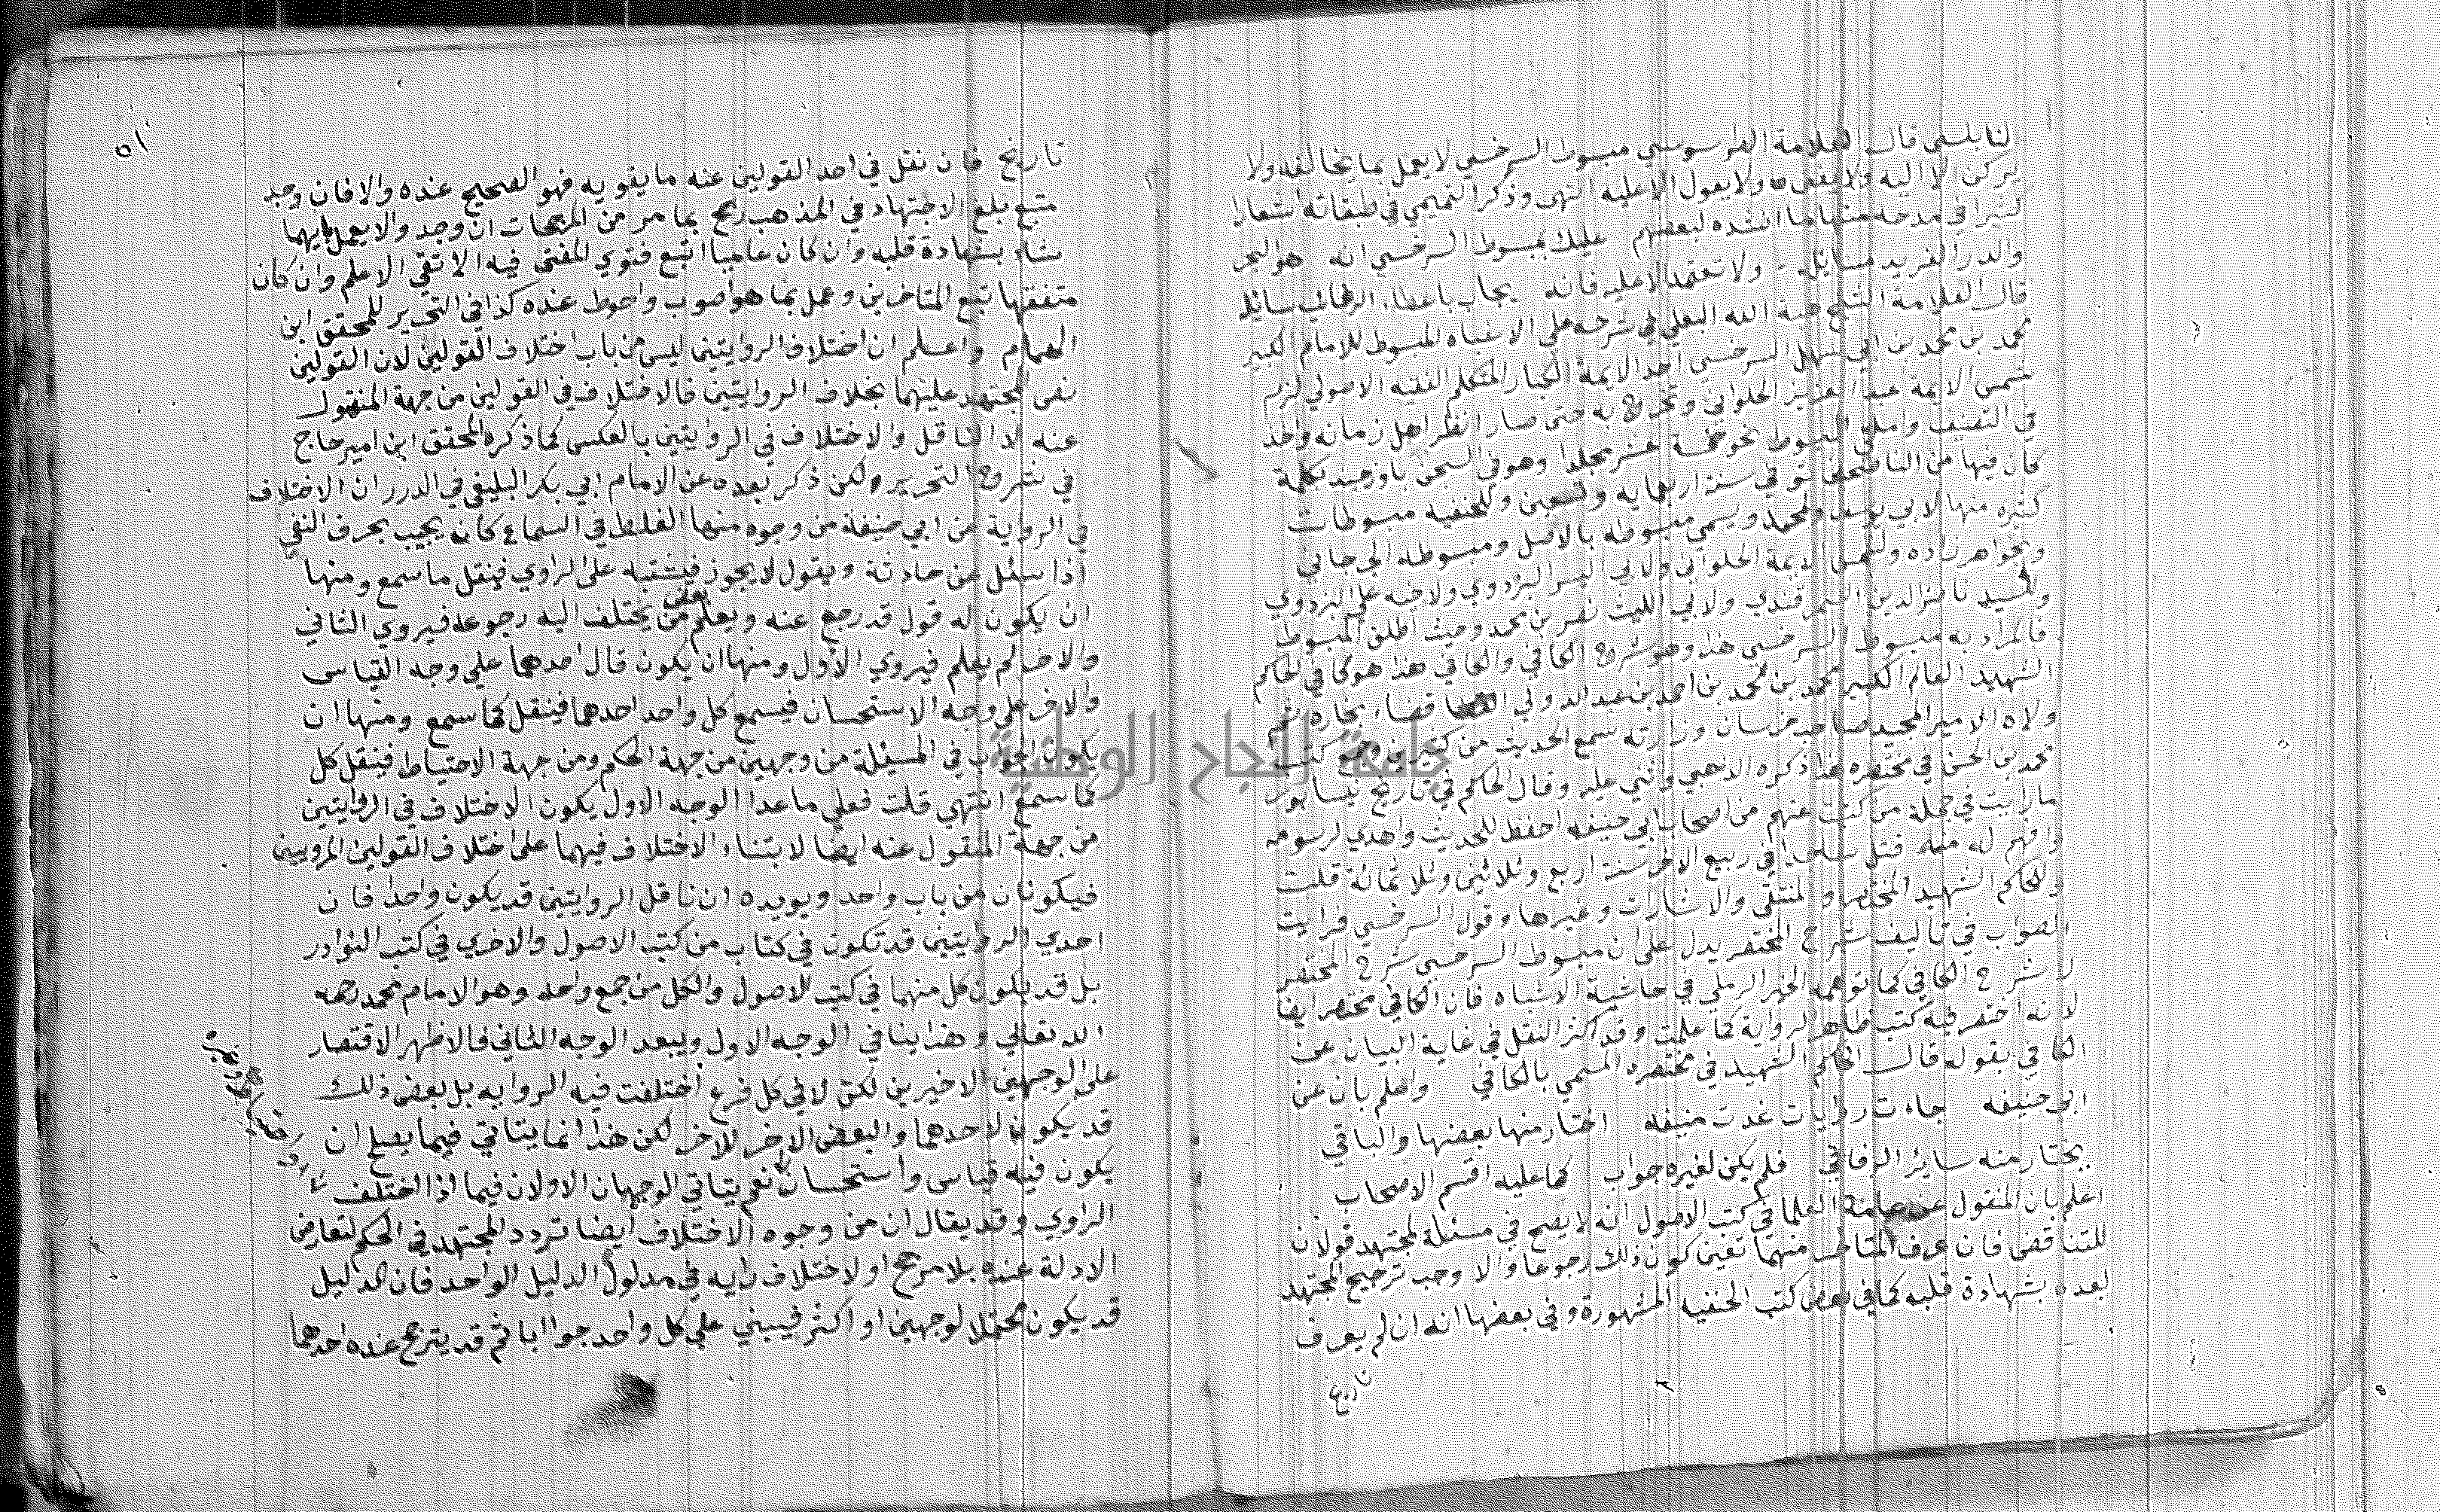 لنابلسي قال العلامة الطرسوسي مبسوط السرخسي لا يعمل بما يخالفه ولا
يركن الا اليه ولا يفتى ولا يعول الا عليه انتهى وذكر التميمي في طبقاته اشعارا
كثيرا في مدحه منها ما انشده لبعضهم عليك بمبسوط السرخسي انه هو البحر
والدر الفريد مسايله ولا تعتمد الا عليه فانه يجاب باعطاء الرغائب سايله
قال العلامة الشيخ هبة الله البعلي في شرحه على الاشباه المبسوط للامام الكبير
محمد بن محمد بن ابي سهل السرخسي احد الايمة الكبار المتكلم الفقيه الاصولي لزم
شمس الايمة عبد العزيز الحلواني وتخرج به حتى صار انظر اهل زمانه واخذ
في التصنيف واملى المبسوط نحو خمسة عشر مجلدا وهو في السجن باوزجند بكلمة
كان فيها من الناصحين توفي سنة اربعمايه وتسعين وللحنفيه مبسوطات
كثيره منها لابي يوسف ولمحمد ويسمى مبسوطه بالاصل ومبسوط الجرجاني
ولخواهر زاده ولشمس الايمة الحلواني ولابي اليسر البزدوي ولاخيه علي البزدوي
وللسيد ناصر الدين السمرقندي ولابي الليث نصر بن محمد وحيث اطلق المبسوط
فالمراد به مبسوط السرخسي هذا وهو شرح الكافي والكافي هذا هو كافي الحاكم
الشهيد العالم الكبير محمد بن محمد بن احمد بن عبد الله ولي قضاء بخاره ثم
ولاه الامير المجيد صاحب خراسان وزارته سمع الحديث من كثيرين وجمع كتب
محمد بن الحسن في مختصره هذا ذكره الذهبي واثنى عليه وقال الحاكم في تاريخ نيسابور
ما رايت في جملة من كتبت عنهم من اصحاب ابي حنيفه احفظ للحديث واهدي لرسومه
وافهم له منه قتل ساجدا في ربيع الاخر سنة اربع وثلاثين وثلاثمائة قلت
وللحاكم الشهيد المختصر والمنتقى والاشارات وغيرها وقول السرخسي فرايت
الصواب في تاليف شرح المختصر يدل على ان مبسوط السرخسي شرح المختصر
لا شرح الكافي كما توهمه الخير الرملي في حاشية الاشباه فان الكافي مختصر ايضا
لانه اختصر فيه كتب ظاهر الرواية كما علمت وقد اكثر النقل في غاية البيان عن
الكافي بقوله قال الحاكم الشهيد في مختصره المسمى بالكافي واعلم بان عن
ابي حنيفه جاءت روايات غدت منيفه اختار منها بعضها والباقي
يختار منه سائر الرفاق فلم يكن لغيره جواب كما عليه اقسم الاصحاب
اعلم بان المنقول عن عامة العلما في كتب الاصول انه لا يصح في مسئلة لمجتهد قولان
للتناقض فان عرف المتاخر منهما تعين كون ذلك رجوعا والا وجب ترجيح المجتهد
بعده بشهادة قلبه كما في بعض كتب الحنفيه المشهورة وفي بعضها انه ان لم يعرف
تاريخ
٥١
تاريخ فان نقل في احد القولين عنه ما يقويه فهو الصحيح عنده والا فان وجد
متبع بلغ الاجتهاد في المذهب رجح بما مر من المرجحات ان وجد والا يعمل بايهما
شاء بشهادة قلبه وان كان عاميا اتبع فتوي المفتى فيه الاتقي الاعلم وان كان
متفقها تبع المتاخرين وعمل بما هو اصوب واحوط عنده كذا في التحرير للمحقق ابن
الهمام واعلم ان اختلاف الروايتين ليس من باب اختلاف القولين لان القولين
نص المجتهد عليهما بخلاف الروايتين فالاختلاف في القولين من جهة المنقول
عنه لا الناقل والاختلاف في الروايتين بالعكس كما ذكره المحقق ابن امير حاج
في شرح التحرير ولكن ذكر بعده عن الامام ابي بكر البليغي في الدرر ان الاختلاف
في الرواية عن ابي حنيفة من وجوه منها الغلط في السماع كان يجيب بحرف النفي
اذا سئل عن حادثة ويقول لا يجوز فيشتبه على الراوي فينقل ما سمع ومنها
ان يكون له قول قد رجع عنه ويعلم بعض من يختلف اليه رجوعه فيروي الثاني
والاخر لم يعلم فيروي الاول ومنها ان يكون قال احدهما على وجه القياس
والاخر على وجه الاستحسان فيسمع كل واحد احدهما فينقل كما سمع ومنها ان
يكون الجواب في المسئلة من وجهين من جهة الحكم ومن جهة الاحتياط فينقل كل
كما سمع انتهي قلت فعلي ما عدا الوجه الاول يكون الاختلاف في الروايتين
من جهة المنقول عنه ايضا لابتناء الاختلاف فيهما على اختلاف القولين المرويين
فيكونان من باب واحد ويويده ان ناقل الروايتين قد يكون واحدا فان
احدي الروايتين قد تكون في كتاب من كتب الاصول والاخري في كتب النوادر
بل قد يكون كل منهما في كتب الاصول والكل من جمع واحد وهو الامام محمد رحمه
الله تعالي وهذا ينافي الوجه الاول ويبعد الوجه الثاني فالاظهر الاقتصار
على الوجهين الاخيرين لكن لا في كل فرع اختلفت فيه الروايه بل بعض ذلك
قد يكون لاحدهما والبعض الاخر للاخر لكن هذا انما يتاتي فيما يصلح ان
يكون فيه قياس واستحسان نعم يتاتي الوجهان الاولان فيما اذا اختلف
الراوي وقد يقال ان من وجوه الاختلاف ايضا تردد المجتهد في الحكم لتعارض
الادلة عنده بلا مرجح او لاختلاف رايه في مدلول الدليل الواحد فان الدليل
قد يكون محتملا لوجهين او اكثر فيبني علي كل واحد جوابا ثم قد يترجح عنده احدهما
جامعة النجاح الوطنية